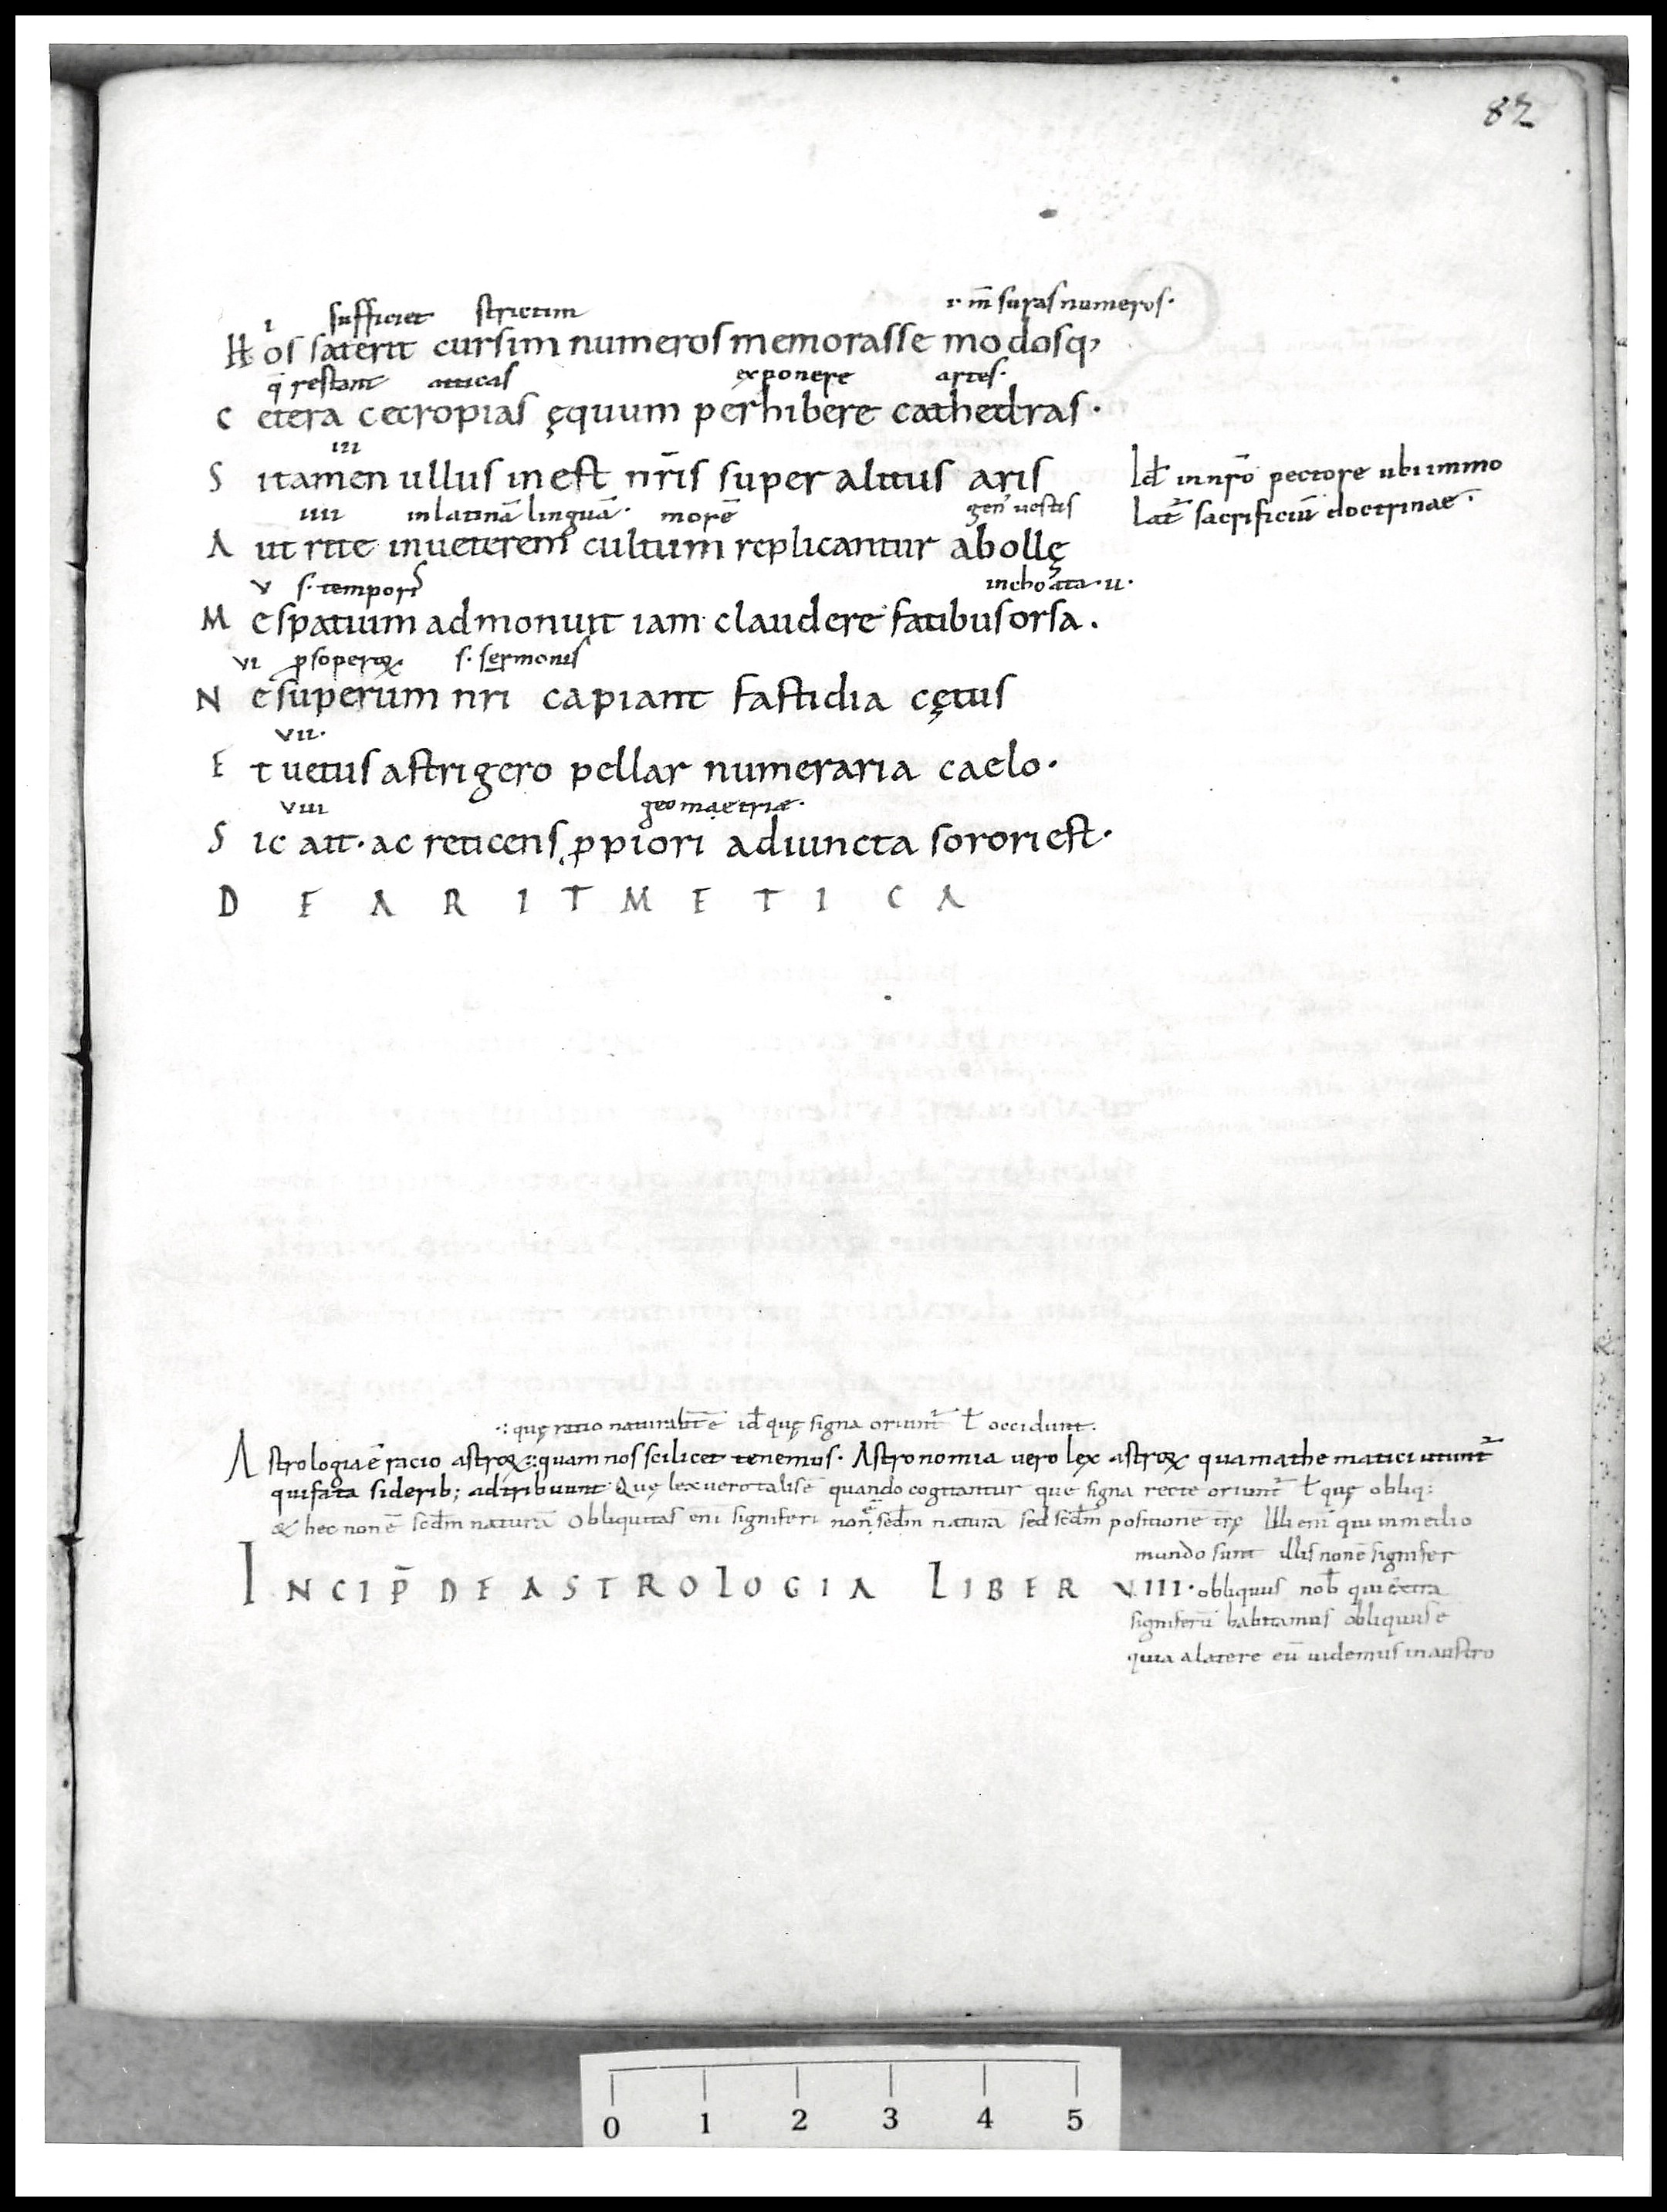 82
ı sufficiet strictim ·ı· m̄ suras numeros·
Hos sat erit cursim numeros memorasse modosq;
q̄ restant atticas exponere artes·
Cetera cecropias ęquum perhibere cathedras·
ııı
Si tamen ullus inest nr̄is super alitus aris
ıııı in latinā linguā· morē gen' uestis
Aut rite inueterem cultum replicantur abollę
Id ē in nr̄o pectore ubi immo
lat̄ sacrificiū doctrinae·
v s· temporis inchoata·u·
Me spatium admonuit iam claudere fatibus orsa.
vı s· sermonis
Ne superum nr̄i capiant fastidia cętus
vıı·
Et uetus astrigero pellar numeraria caelo·
vııı geomaetriæ·
Sic ait· ac reticens ꝓpiori adiuncta sorori est·
DE ARITMETICA
·: quę ratio naturalit̄ ē id quę signa oriunt̄ ł occidunt·
Astrologia ē racio astroꝝ :: quam nos scilicet tenemus· Astronomia uero lex astroꝝ qua mathematici utunt̄
qui fata siderib; adtribuunt· Quę lex uero talis ē quando cogitantur que signa recte oriunt̄ ł quę obliq:
& hec non ē scdm̄ naturā Obliquitas eni signiferi non ē sedm̄ natura sed scdm̄ positione tr̄ę Illi enī qui in medio
mundo sunt illis non ē signifer
INCIP̄ DE ASTROLOGIA LIBER VIII· obliquus nob̄ qui extra
signiferū habitamus obliquus ē
quia a latere eū uidemus in austro
0 1 2 3 4 5